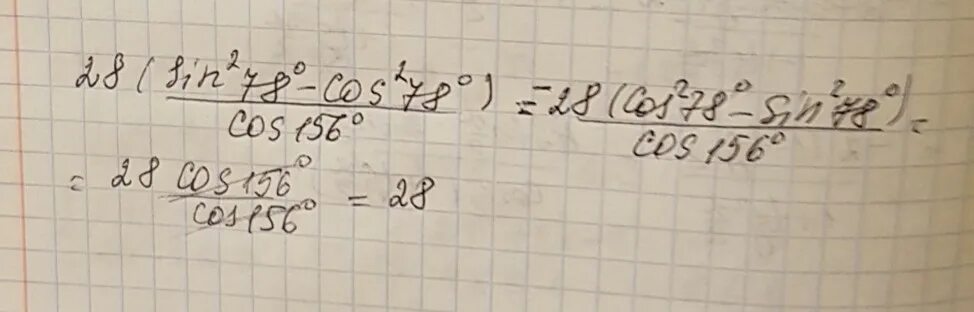 28 (sin²78° - cos²78°) / cos 156° = -28 (cos²78° - sin²78°) / cos 156° =
= 28 cos 156° / cos 156° = 28